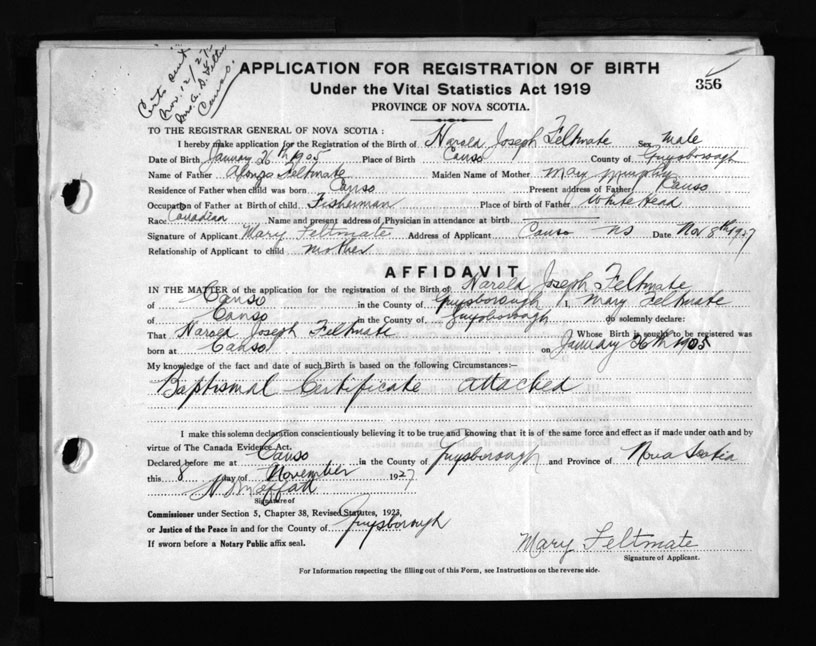 Certs sent
Nov. 12/27
Mrs. A. D. Feltm
Canso.
APPLICATION FOR REGISTRATION OF BIRTH
356
Under the Vital Statistics Act 1919
PROVINCE OF NOVA SCOTIA.
TO THE REGISTRAR GENERAL OF NOVA SCOTIA:
I hereby make application for the Registration of the Birth of Harold Joseph Feltmate Sex male
Date of Birth January 26th 1905 Place of Birth Canso County of Guysborough
Name of Father Alonzo Feltmate Maiden Name of Mother Mary Murphy
Residence of Father when child was born Canso Present address of Father Canso
Occupation of Father at Birth of child Fisherman Place of birth of Father White Head
Race Canadian Name and present address of Physician in attendance at birth
Signature of Applicant Mary Feltmate Address of Applicant Canso NS Date Nov 8th 1927
Relationship of Applicant to child mother
AFFIDAVIT
IN THE MATTER of the application for the registration of the Birth of Harold Joseph Feltmate
of Canso in the County of Guysborough I, Mary Feltmate
of Canso in the County of Guysborough do solemnly declare:
That Harold Joseph Feltmate Whose Birth is sought to be registered was
born at Canso on January 26th 1905
My knowledge of the fact and date of such Birth is based on the following Circumstances:—
Baptismal Certificate attached
I make this solemn declaration conscientiously believing it to be true and knowing that it is of the same force and effect as if made under oath and by
virtue of The Canada Evidence Act.
Declared before me at Canso in the County of Guysborough and Province of Nova Scotia
this 8 day of November 1927
Signature of
Commissioner under Section 5, Chapter 38, Revised Statutes, 1923,
or Justice of the Peace in and for the County of Guysborough
If sworn before a Notary Public affix seal.
Mary Feltmate
Signature of Applicant.
For Information respecting the filling out of this Form, see Instructions on the reverse side.